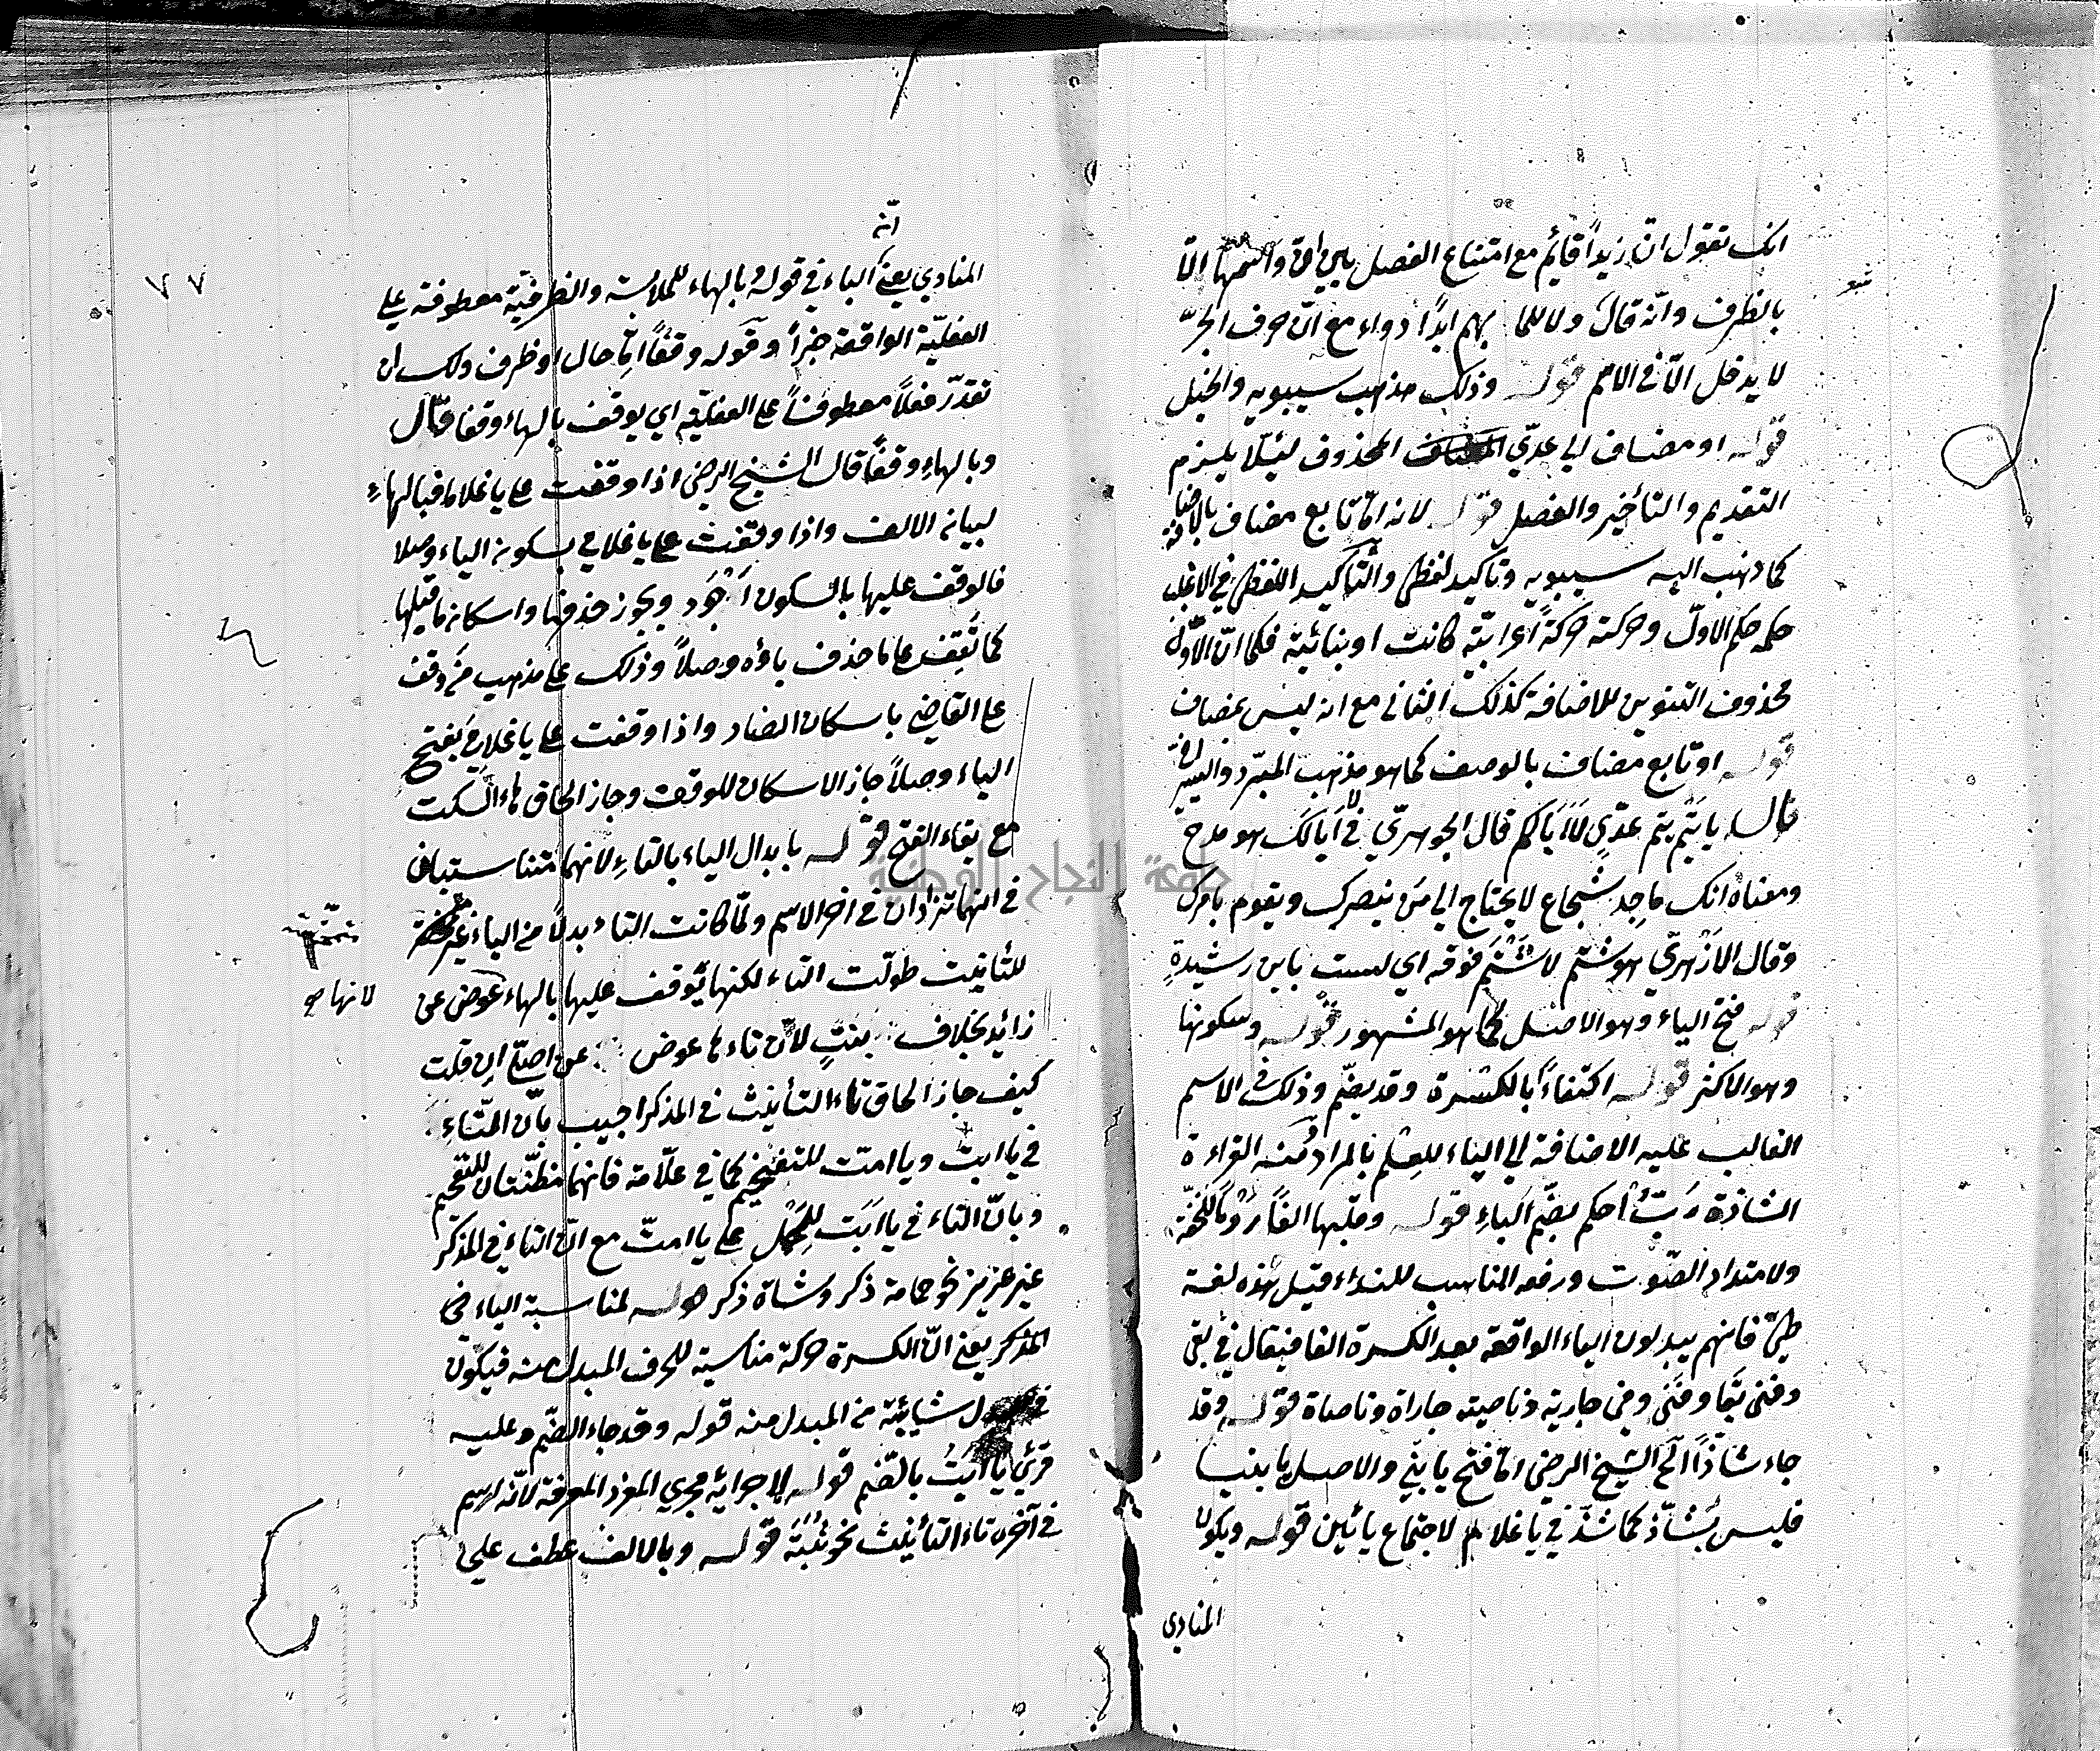 انك تقول انّ زيداً قائم مع امتناع الفصل بين انّ واسمها الّا
بالظرف وانّه قال ولا للما بهم ابدًا دواء مع انّ حرف الجرّ
لا يدخل الّا في الاسم قوله وذلك مذهب سيبويه والخليل
قوله او مضاف الي عديّ المحذوف لئلّا يلزم
التقديم والتأخير والفصل قوله لانه امّا تابع مضاف بالاضافة
كما ذهب اليه سيبويه وتأكيد لفظي والتأكيد اللفظي في الاغلب
حكمه حكم الاول وحركته حركةً اعرابيّة كانت او بنائية فكما انّ الاول
محذوف التنوين للاضافة كذلك الثاني مع انه ليس بمضاف
قوله او تابع مضاف بالوصف كما هو مذهب المبرّد والسيرافيّ
قال يا تيم تيم عديّ لا ابا لكم قال الجوهريّ في لا ابا لك هو مدح
ومعناه انك ماجد شجاع لا يحتاج الي من ينصرك ويقوم بامرك
وقال الازهريّ هو شتم لا شتم فوقه اي لست بابن رشيدةٍ
قوله فتح الياء وهو الاصل كما هو المشهور قوله وسكونها
وهو الاكثر قوله اكتفاءً بالكسرة وقد يضمّ وذلك في الاسم
الغالب عليه الاضافة الي الياء للعلم بالمراد منه القراءة
الشاذة ربُّ احكم بضمّ الباءِ قوله وقلبها الفًا روما للخفّة
ولامتداد الصّوت ورفعه المناسب للنداء قيل هذه لغة
طيّ فانهم يبدلون الياء الواقعة بعد الكسرة الفا فيقال في بقي
وفني بقا وفني وفي جارية وناصية جاراة وناصاة قوله وقد
جاء شاذّاً الخ الشيخ الرضي امّا فتح يا بنيّ والاصل يا بنيا
فليس بشاذّ كما شذّ في يا غلام لاجتماع يائين قوله ويكون
المنادي
٧٧
انّه
المنادي يعني الباء في قوله بالهاء للملابسة والظرفيّة معطوفة علي
الفعليّة الواقعة خبراً وقوله وقفًا امّا حال او ظرف ولك ان
تقدّر فعلاً معطوفاً علي الفعليّة اي يوقف بالهاء وقفا قال
وبالهاء وقفًا قال الشيخ الرضي اذا وقفت علي يا غلاما فبالهاءِ
لبيان الالف واذا وقفت علي يا غلامي بسكون الياء وصلا
فالوقف عليها بالسكون اجود ويجوز حذفها واسكان ما قبلها
كما تقف علي ما حذف ياؤه وصلاً وذلك علي مذهب من وقف
علي القاضي باسكان الضاد واذا وقفت علي يا غلاميَ بفتح
الياء وصلاً جاز الاسكان للوقف وجاز الحاق هاء السّكت
مع بقاء الفتح قوله بابدال الياء بالتاءِ لانهما متناسبتان
في انهما تزادان في اخر الاسم ولمّا كانت التاء بدلاً من الياء غير
للتأنيث طوّلت التاء لكنها يوقف عليها بالهاء عوض عن
لانها
زائد بخلاف بنتٍ لانّ تاءها عوض عن اصليّ ان قلت
كيف جاز الحاق تاء التأنيث في المذكر اجيب بانّ التّاءِ
في يا ابت ويا امّت للتفخيم كما في علّامة فانهما مظنّتان للتفخيم
وبانّ التاء في يا ابت للحمل علي يا امتّ مع انّ التاء في المذكّر
غير عزيز نحو حمامة ذكر وشاة ذكر قوله لمناسبة الياء في
المذكر يعني انّ الكسرة حركة مناسبة للحرف المبدل منه فيكون
شيائيّة من المبدل منه قوله وقد جاء الضّم وعليه
قرئ يا ابتُ بالضّم قوله لاجرائه مجري المفرد المعرفة لانّه اسم
في آخره تاء التأنيث نحو ثُبَةُ قوله وبالالف عطف علي
جامعة النجاح الوطنية